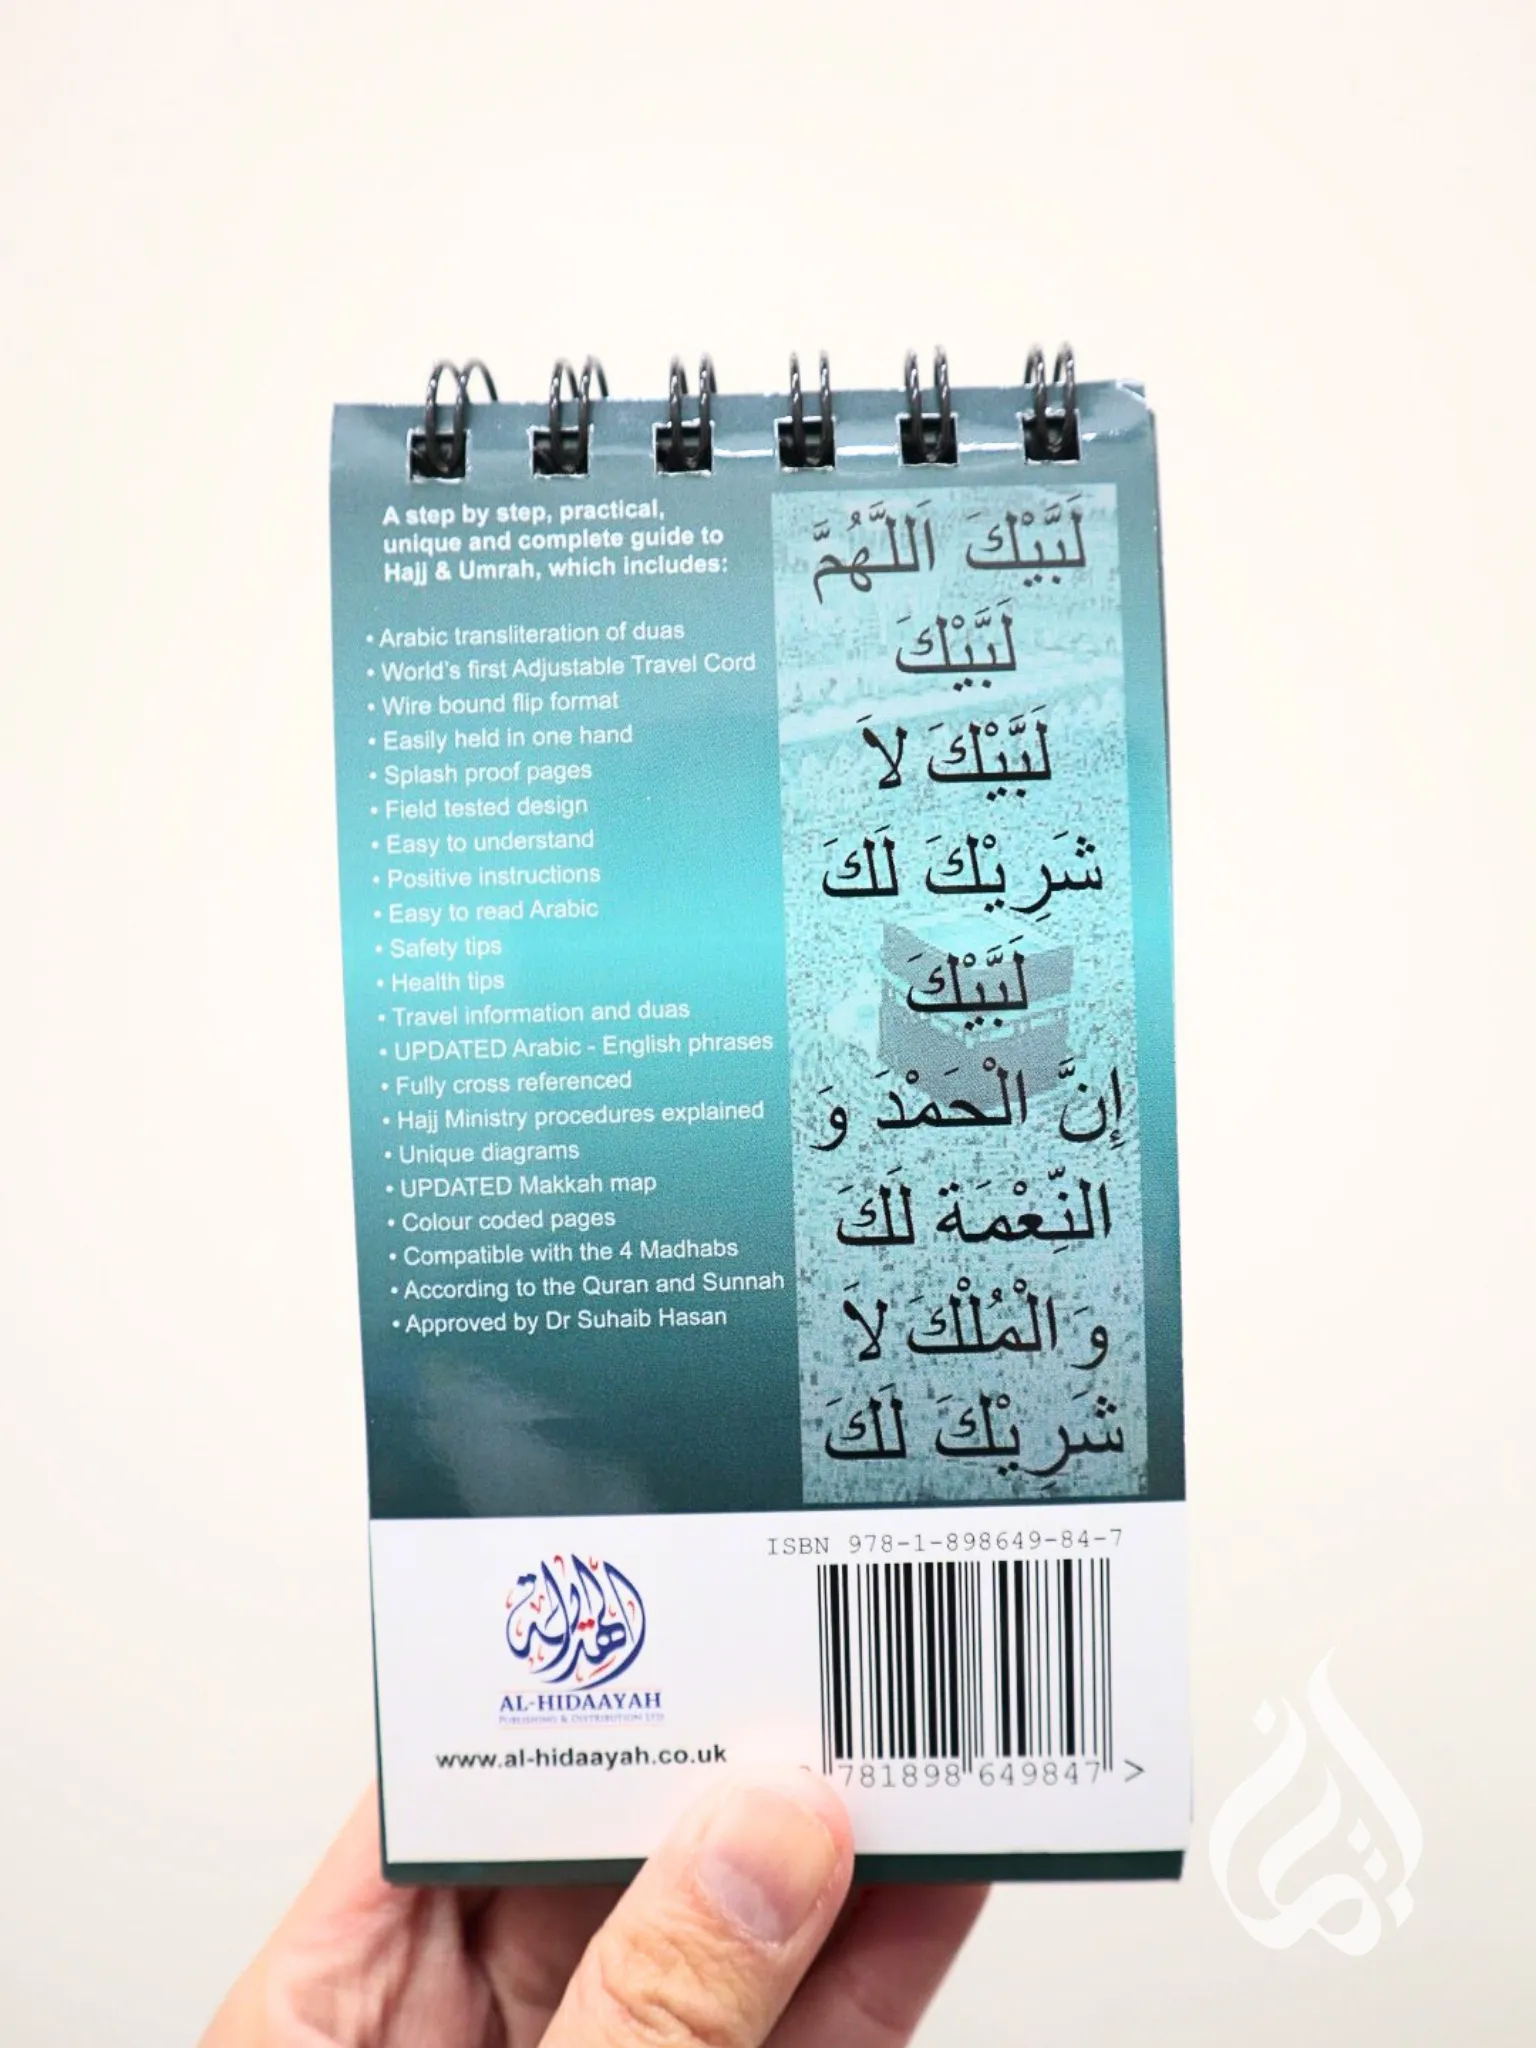 A step by step, practical,
unique and complete guide to
Hajj & Umrah, which includes:
• Arabic transliteration of duas
• World's first Adjustable Travel Cord
• Wire bound flip format
• Easily held in one hand
• Splash proof pages
• Field tested design
• Easy to understand
• Positive instructions
• Easy to read Arabic
• Safety tips
• Health tips
• Travel information and duas
• UPDATED Arabic - English phrases
• Fully cross referenced
• Hajj Ministry procedures explained
• Unique diagrams
• UPDATED Makkah map
• Colour coded pages
• Compatible with the 4 Madhabs
• According to the Quran and Sunnah
• Approved by Dr Suhaib Hasan
لَبَّيْكَ اَللَّهُمَّ
لَبَّيْكَ
لَبَّيْكَ لاَ
شَرِيْكَ لَكَ
لَبَّيْكَ
إِنَّ الْحَمْدَ وَ
النِّعْمَةَ لَكَ
وَ الْمُلْكَ لاَ
شَرِيْكَ لَكَ
الهداية
AL-HIDAAYAH
PUBLISHING & DISTRIBUTION LTD
www.al-hidaayah.co.uk
ISBN 978-1-898649-84-7
781898 649847 >